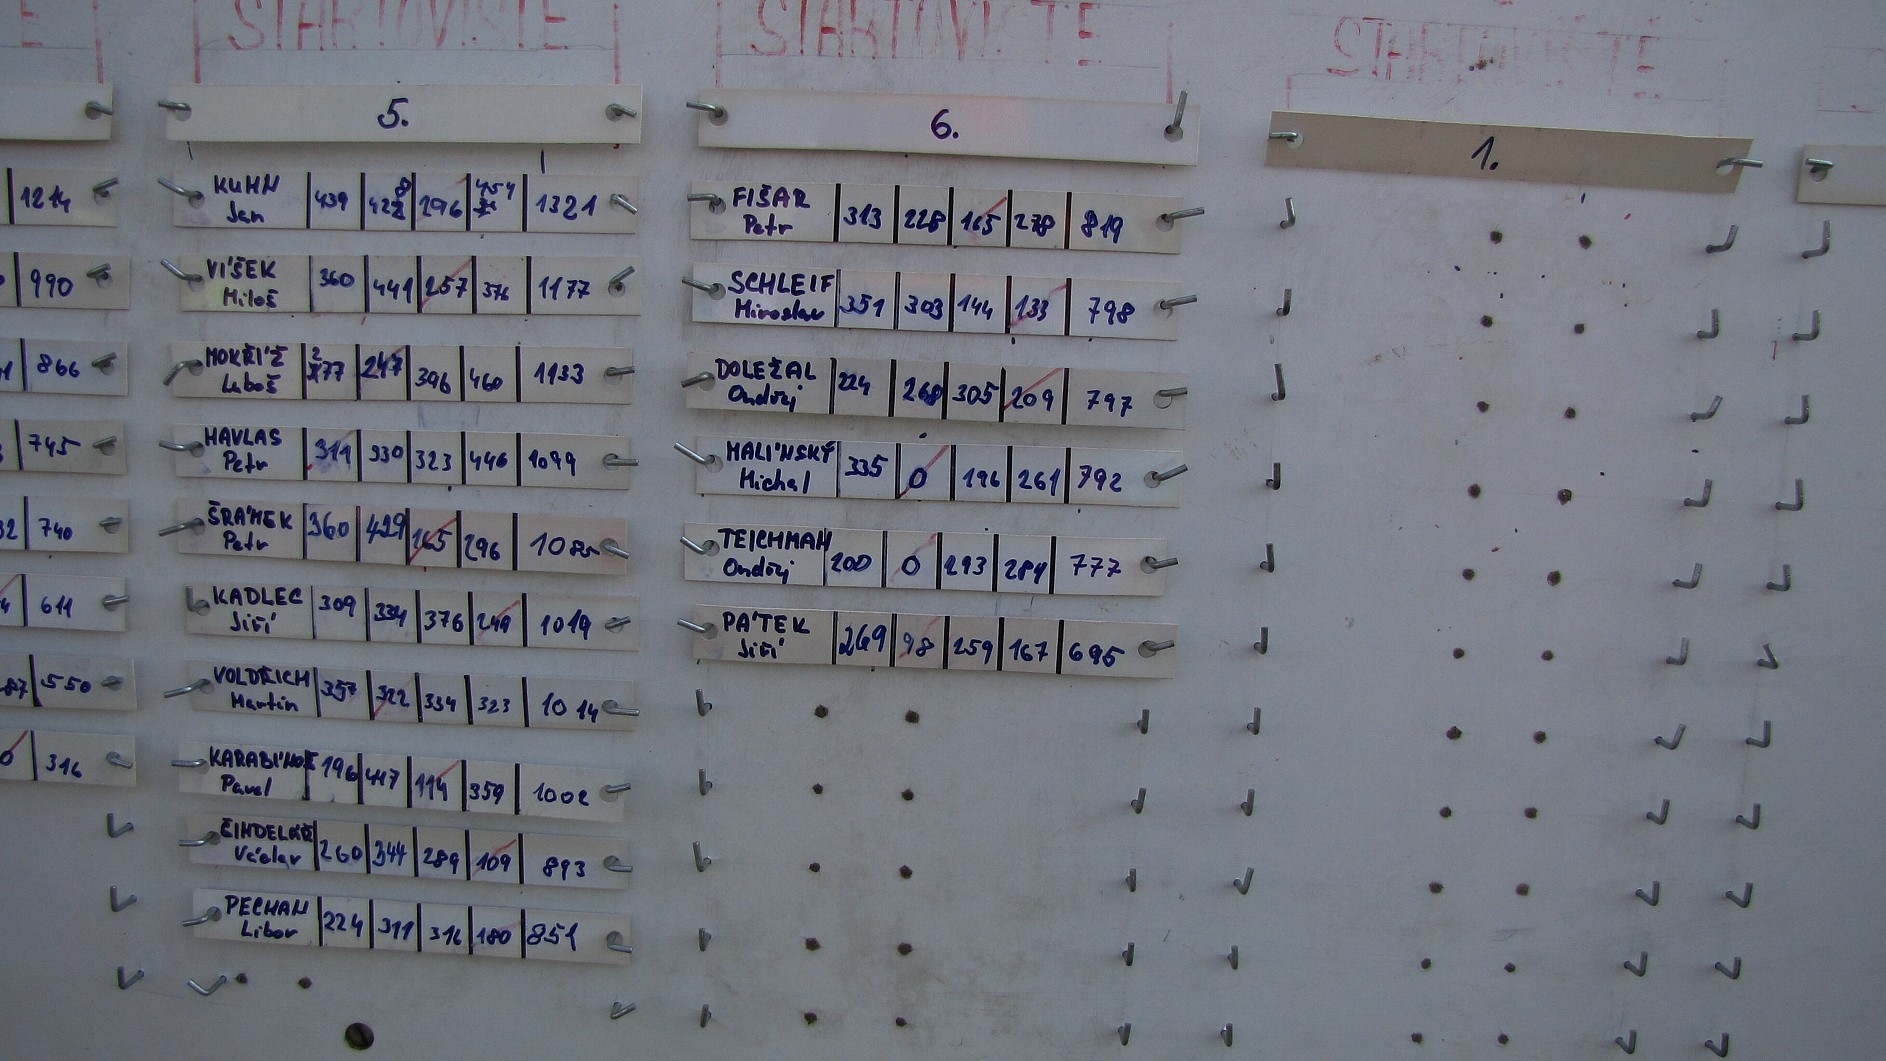 STARTOVIŠTĚ
STARTOVIŠTĚ
STARTOVIŠTĚ
1214
990
866
745
32 740
611
87 550
0 316
5.
KUHN Jan 439 428 296 454 1321
VÍŠEK Miloš 360 441 257 376 1177
MOKŘÍŽ Luboš 277 247 396 460 1133
HAVLAS Petr 311 330 323 446 1099
ŠRÁMEK Petr 360 429 165 296 1085
KADLEC Jiří 309 334 376 249 1019
VOLDŘICH Martin 357 322 334 323 1014
Pavel 196 447 114 359 1002
Václav 260 344 289 109 893
PECHAN Libor 224 311 316 180 851
6.
FIŠAR Petr 313 228 165 278 819
SCHLEIF Miroslav 351 303 144 133 798
DOLEŽAL Ondřej 224 268 305 209 797
MALÍNSKÝ Michal 335 0 196 261 792
TEICHMAN Ondřej 200 0 293 284 777
PÁTEK Jiří 269 98 259 167 695
1.